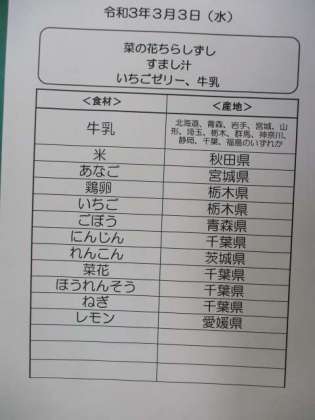 令和3年3月3日（水）
菜の花ちらしずし
すまし汁
いちごゼリー、牛乳
＜食材＞ ＜産地＞
牛乳 北海道、青森、岩手、宮城、山
形、埼玉、栃木、群馬、神奈川、
静岡、千葉、福島のいずれか
米 秋田県
あなご 宮城県
鶏卵 栃木県
いちご 栃木県
ごぼう 青森県
にんじん 千葉県
れんこん 茨城県
菜花 千葉県
ほうれんそう 千葉県
ねぎ 千葉県
レモン 愛媛県